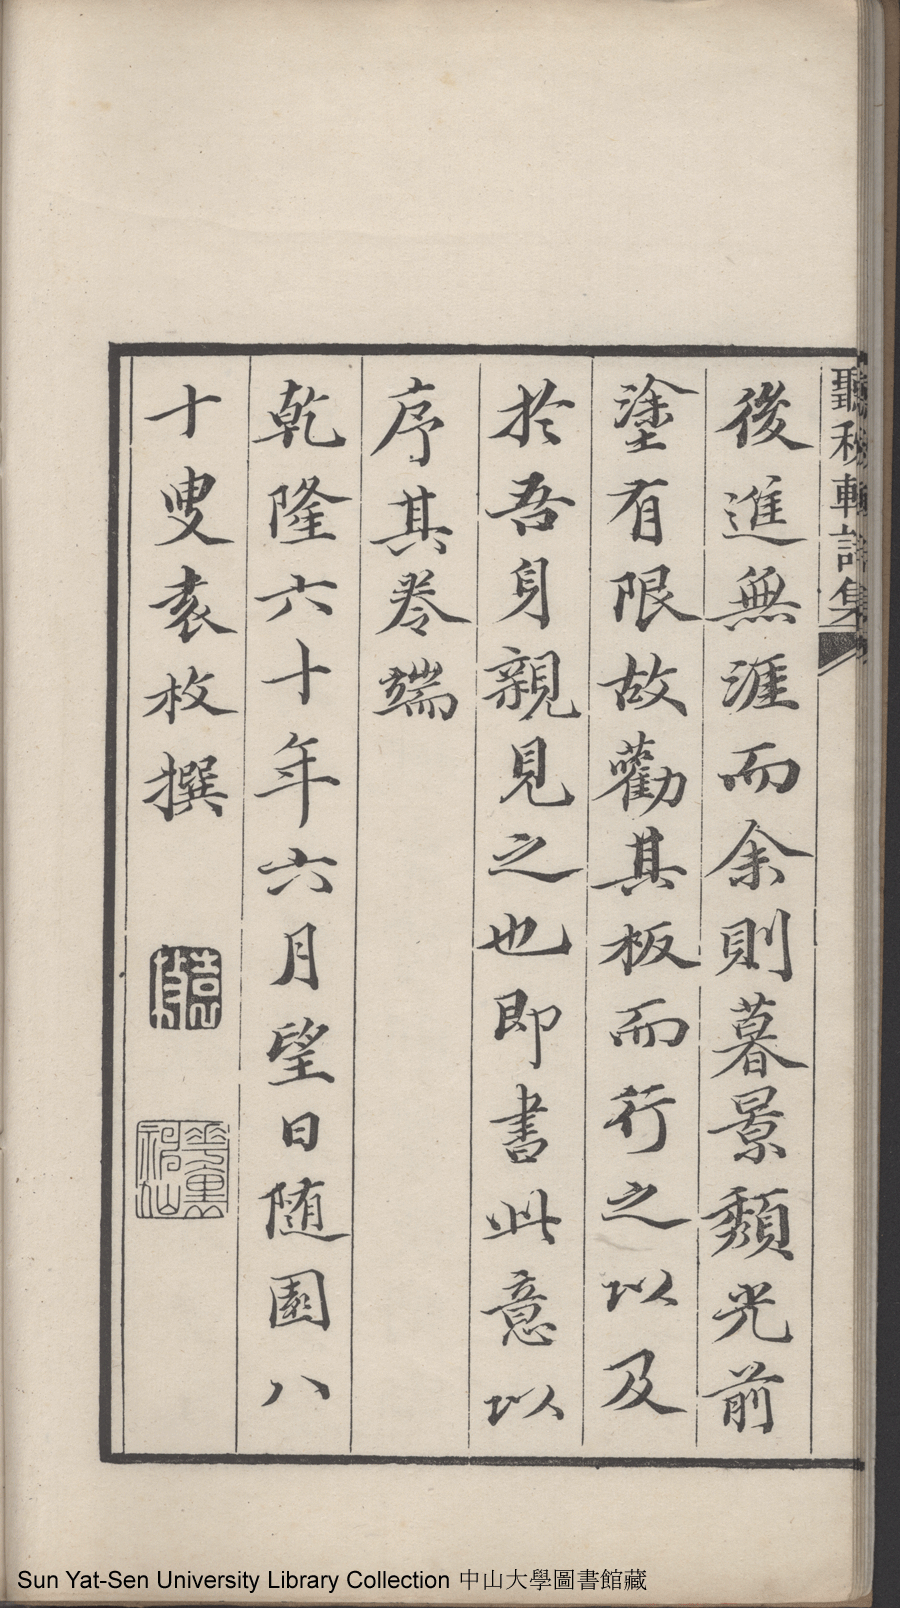 聽秋軒詩集
後進無涯而余則暮景頽光前
塗有限故勸其板而行之以及
於吾身親見之也即書此意以
序其卷端
乾隆六十年六月望日随園八
十叟袁枚撰
Sun Yat-Sen University Library Collection 中山大學圖書館藏